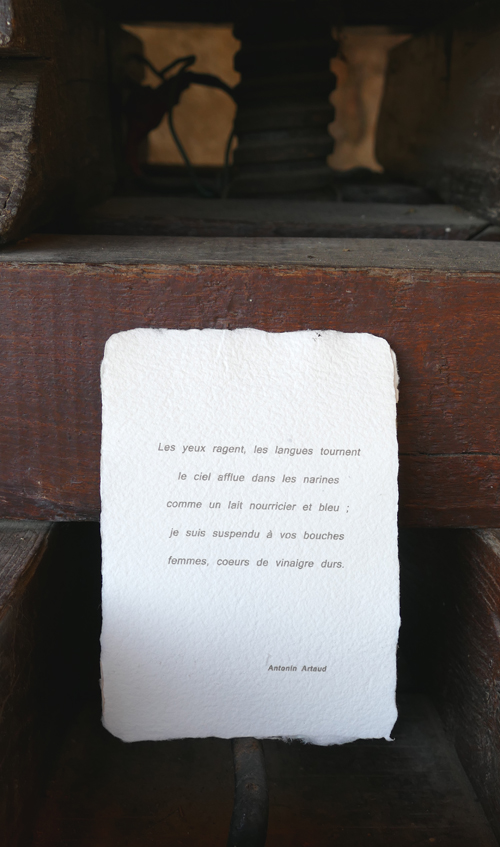 Les yeux ragent, les langues tournent
le ciel afflue dans les narines
comme un lait nourricier et bleu ;
je suis suspendu à vos bouches
femmes, coeurs de vinaigre durs.
Antonin Artaud